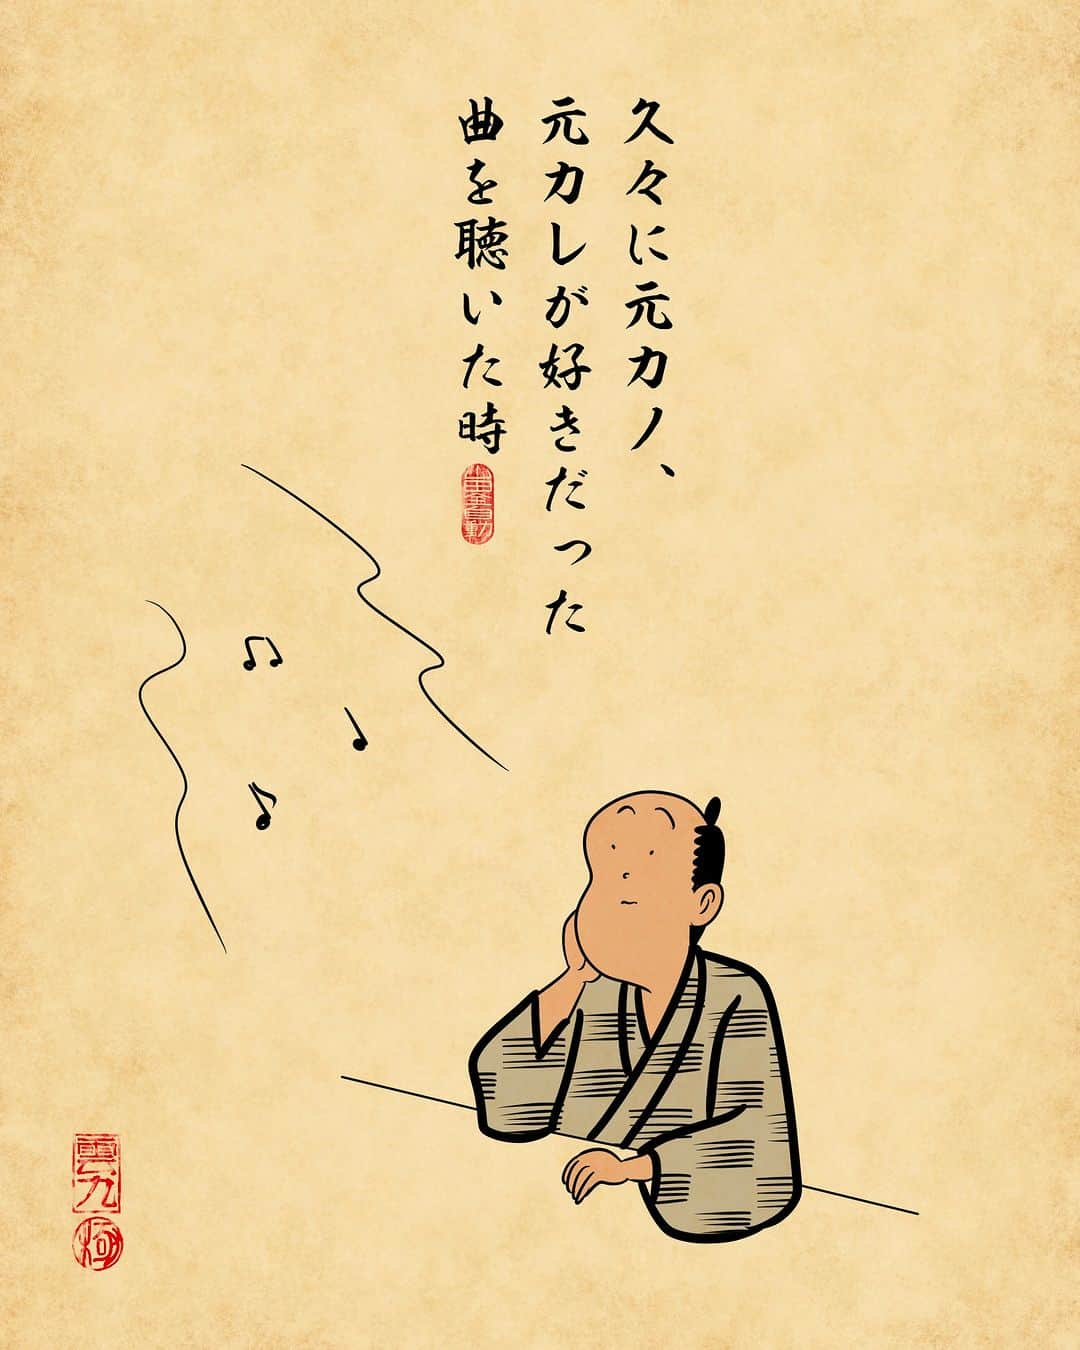 久々に元カノ、
元カレが好きだった
曲を聴いた時